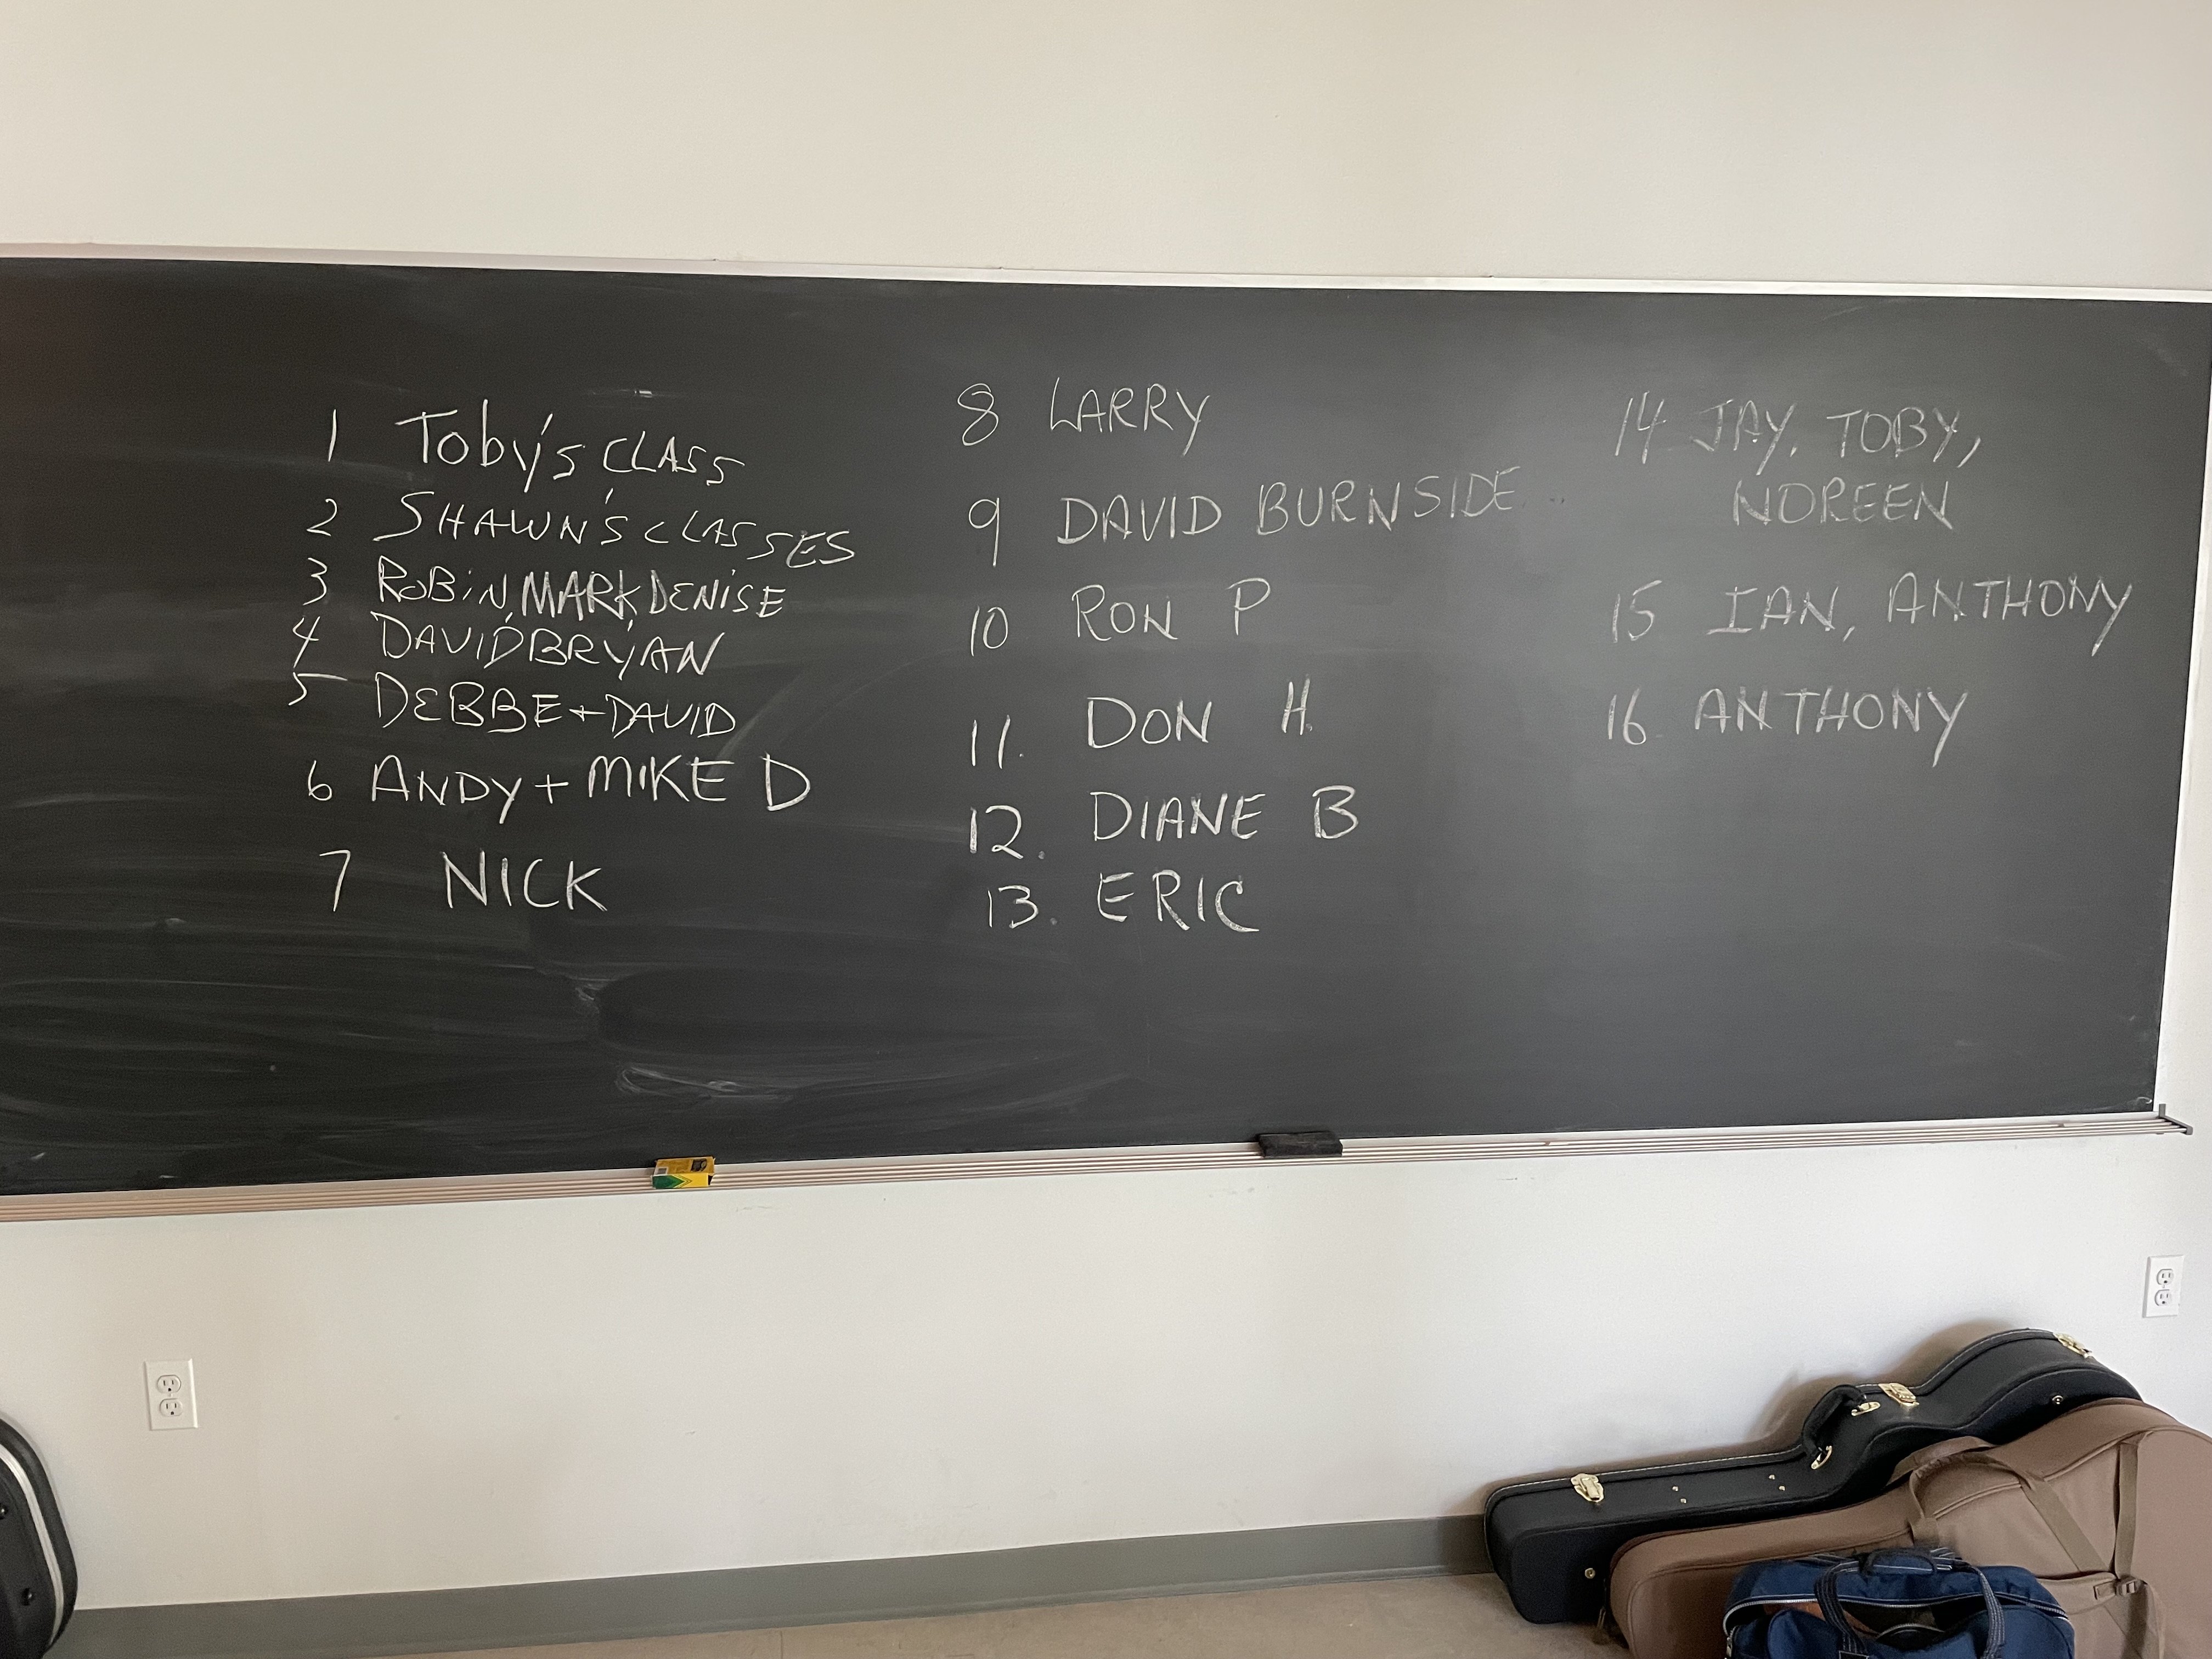 1 Toby's CLASS
2 SHAWN'S CLASSES
3 ROBiN, MARK, DENiSE
4 DAVID, BRYAN
5 DEBBE + DAVID
6 ANDY + MIKE D
7 NICK
8 LARRY
9 DAVID BURNSIDE
10 RON P
11. DON H
12. DIANE B
13. ERIC
14 JAY, TOBY,
NOREEN
15 IAN, ANTHONY
16 ANTHONY